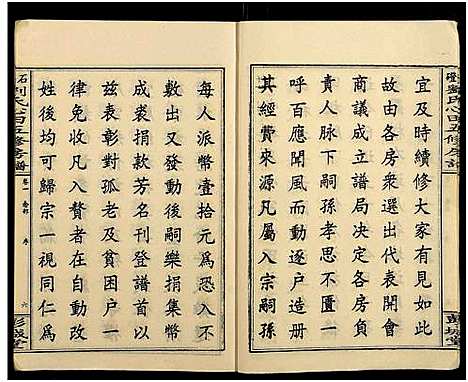 劉氏心田五修房譜
彭城堂
宜及時續修大家有見如此
故由各房眾選出代表開會
商議成立譜局決定各房負
責人脉下嗣孫孝思不匱一
呼百應聞風而動逐戶造册
經費來源凡屬入宗子嗣
每人派幣壹拾元為恐入
數出又發後嗣樂捐集幣
成裘捐款芳名刊登譜首以
茲表彰對孤老貧困戶一
律免收凡入贅者在自動改
姓後均可歸宗一視同仁為
石劉氏心田五修房譜
卷一
序
六
彭城堂